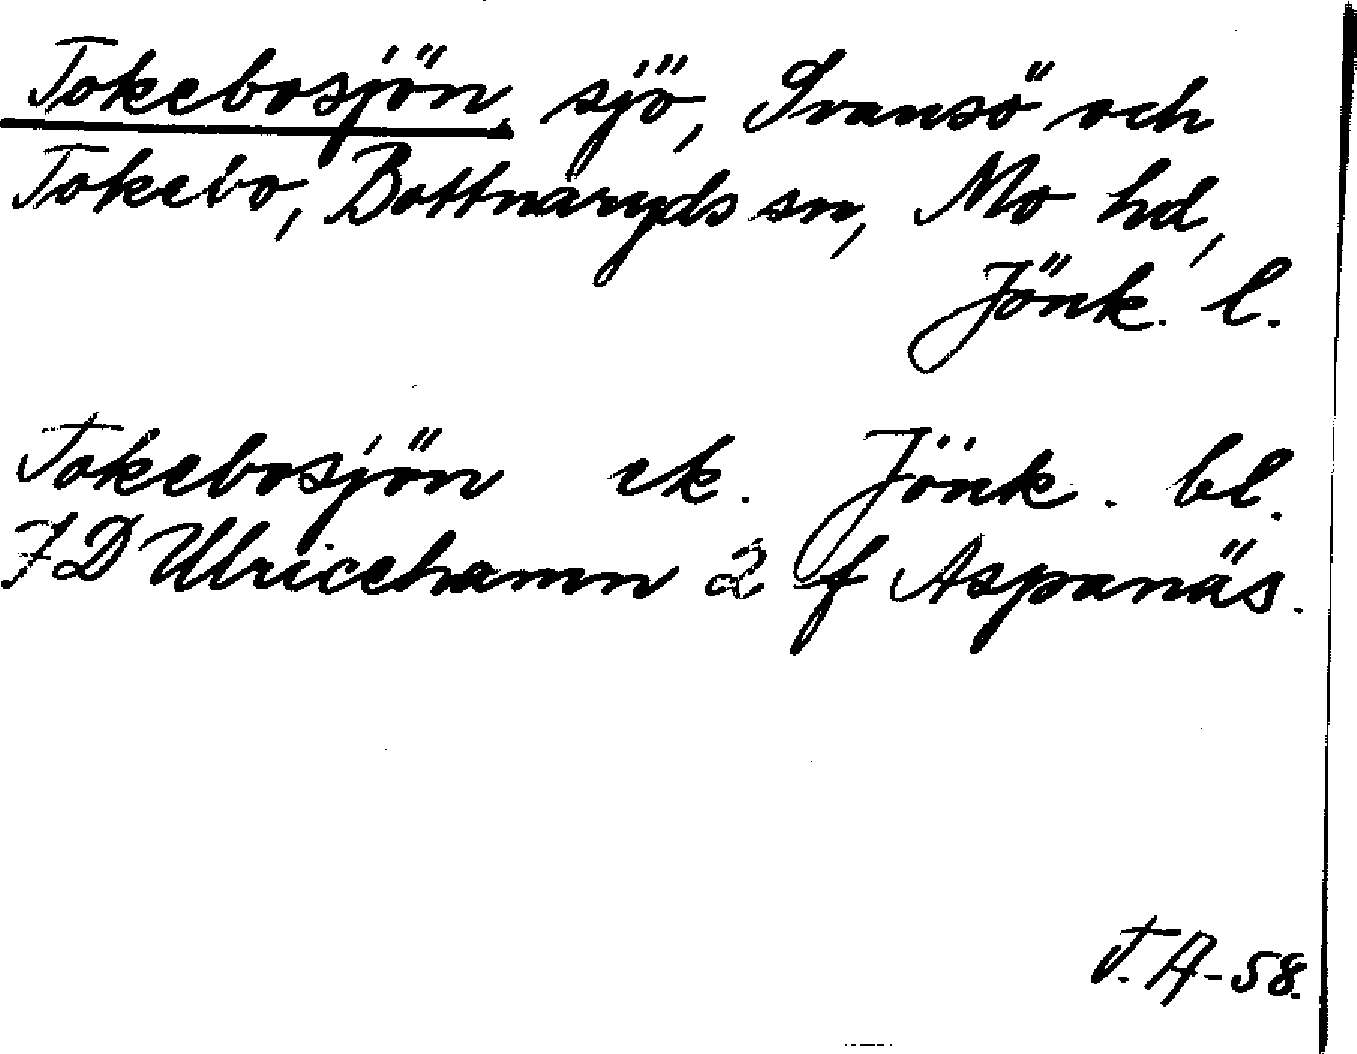 Tokebosjön, sjö, Svansö och
Tokebo, Bottnaryds sn, Mo hd,
Jönk. l.
Tokebosjön ek. Jönk. bl.
7 D Ulricehamn 2 f Aspanäs.
T. A-58.